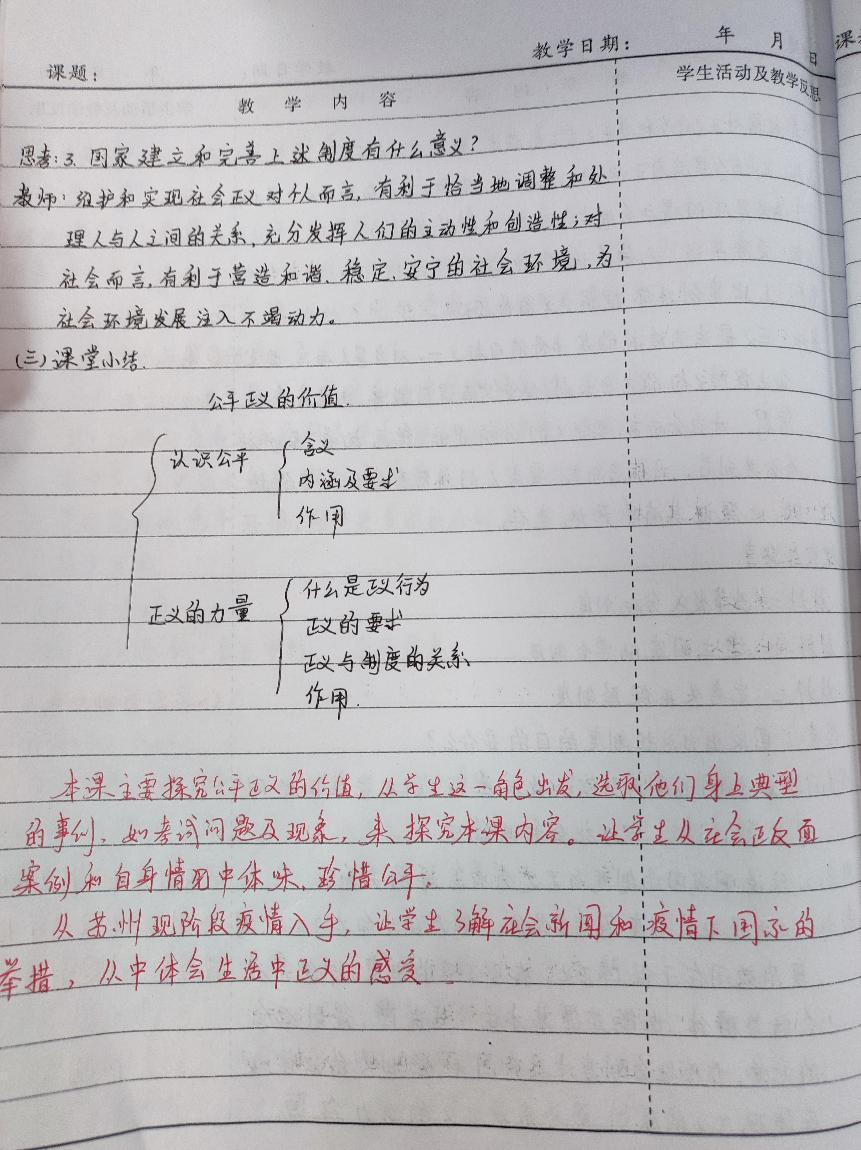 教学日期： 年 月 日
课题：
教 学 内 容
学生活动及教学反思
思考：3. 国家建立和完善上述制度有什么意义？
教师：维护和实现社会正义对个人而言，有利于恰当地调整和处
理人与人之间的关系，充分发挥人们的主动性和创造性；对
社会而言，有利于营造和谐、稳定、安宁的社会环境，为
社会环境发展注入不竭动力。
(三)课堂小结.
公平正义的价值.
认识公平
含义
内涵及要求
作用
正义的力量
什么是正义行为
正义的要求
正义与制度的关系
作用.
本课主要探究公平正义的价值，从学生这一角色出发，选取他们身上典型
的事例，如考试问题及现象，来探究本课内容。让学生从社会正反面
案例和自身情况中体味、珍惜公平。
从苏州现阶段疫情入手，让学生了解社会新闻和疫情下国家的
举措，从中体会生活中正义的感受.